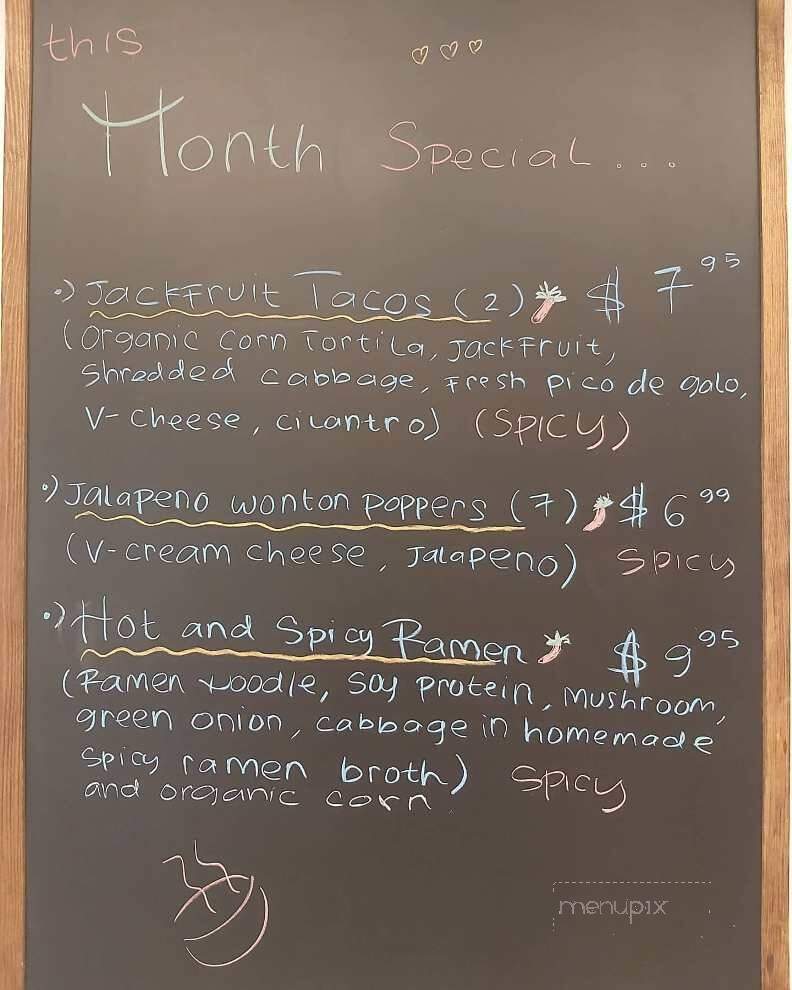 this
Month Special...
Jackfruit Tacos (2) $ 7 95
(Organic corn Tortila, Jackfruit,
Shredded cabbage, Fresh pico de galo,
V-Cheese, cilantro) (SPICY)
Jalapeno wonton poppers (7) $ 6 99
(V-cream cheese, Jalapeno) Spicy
Hot and Spicy Ramen $ 9 95
(Ramen Noodle, Soy protein, Mushroom,
green onion, cabbage in homemade
Spicy ramen broth) Spicy
and organic corn
menupix